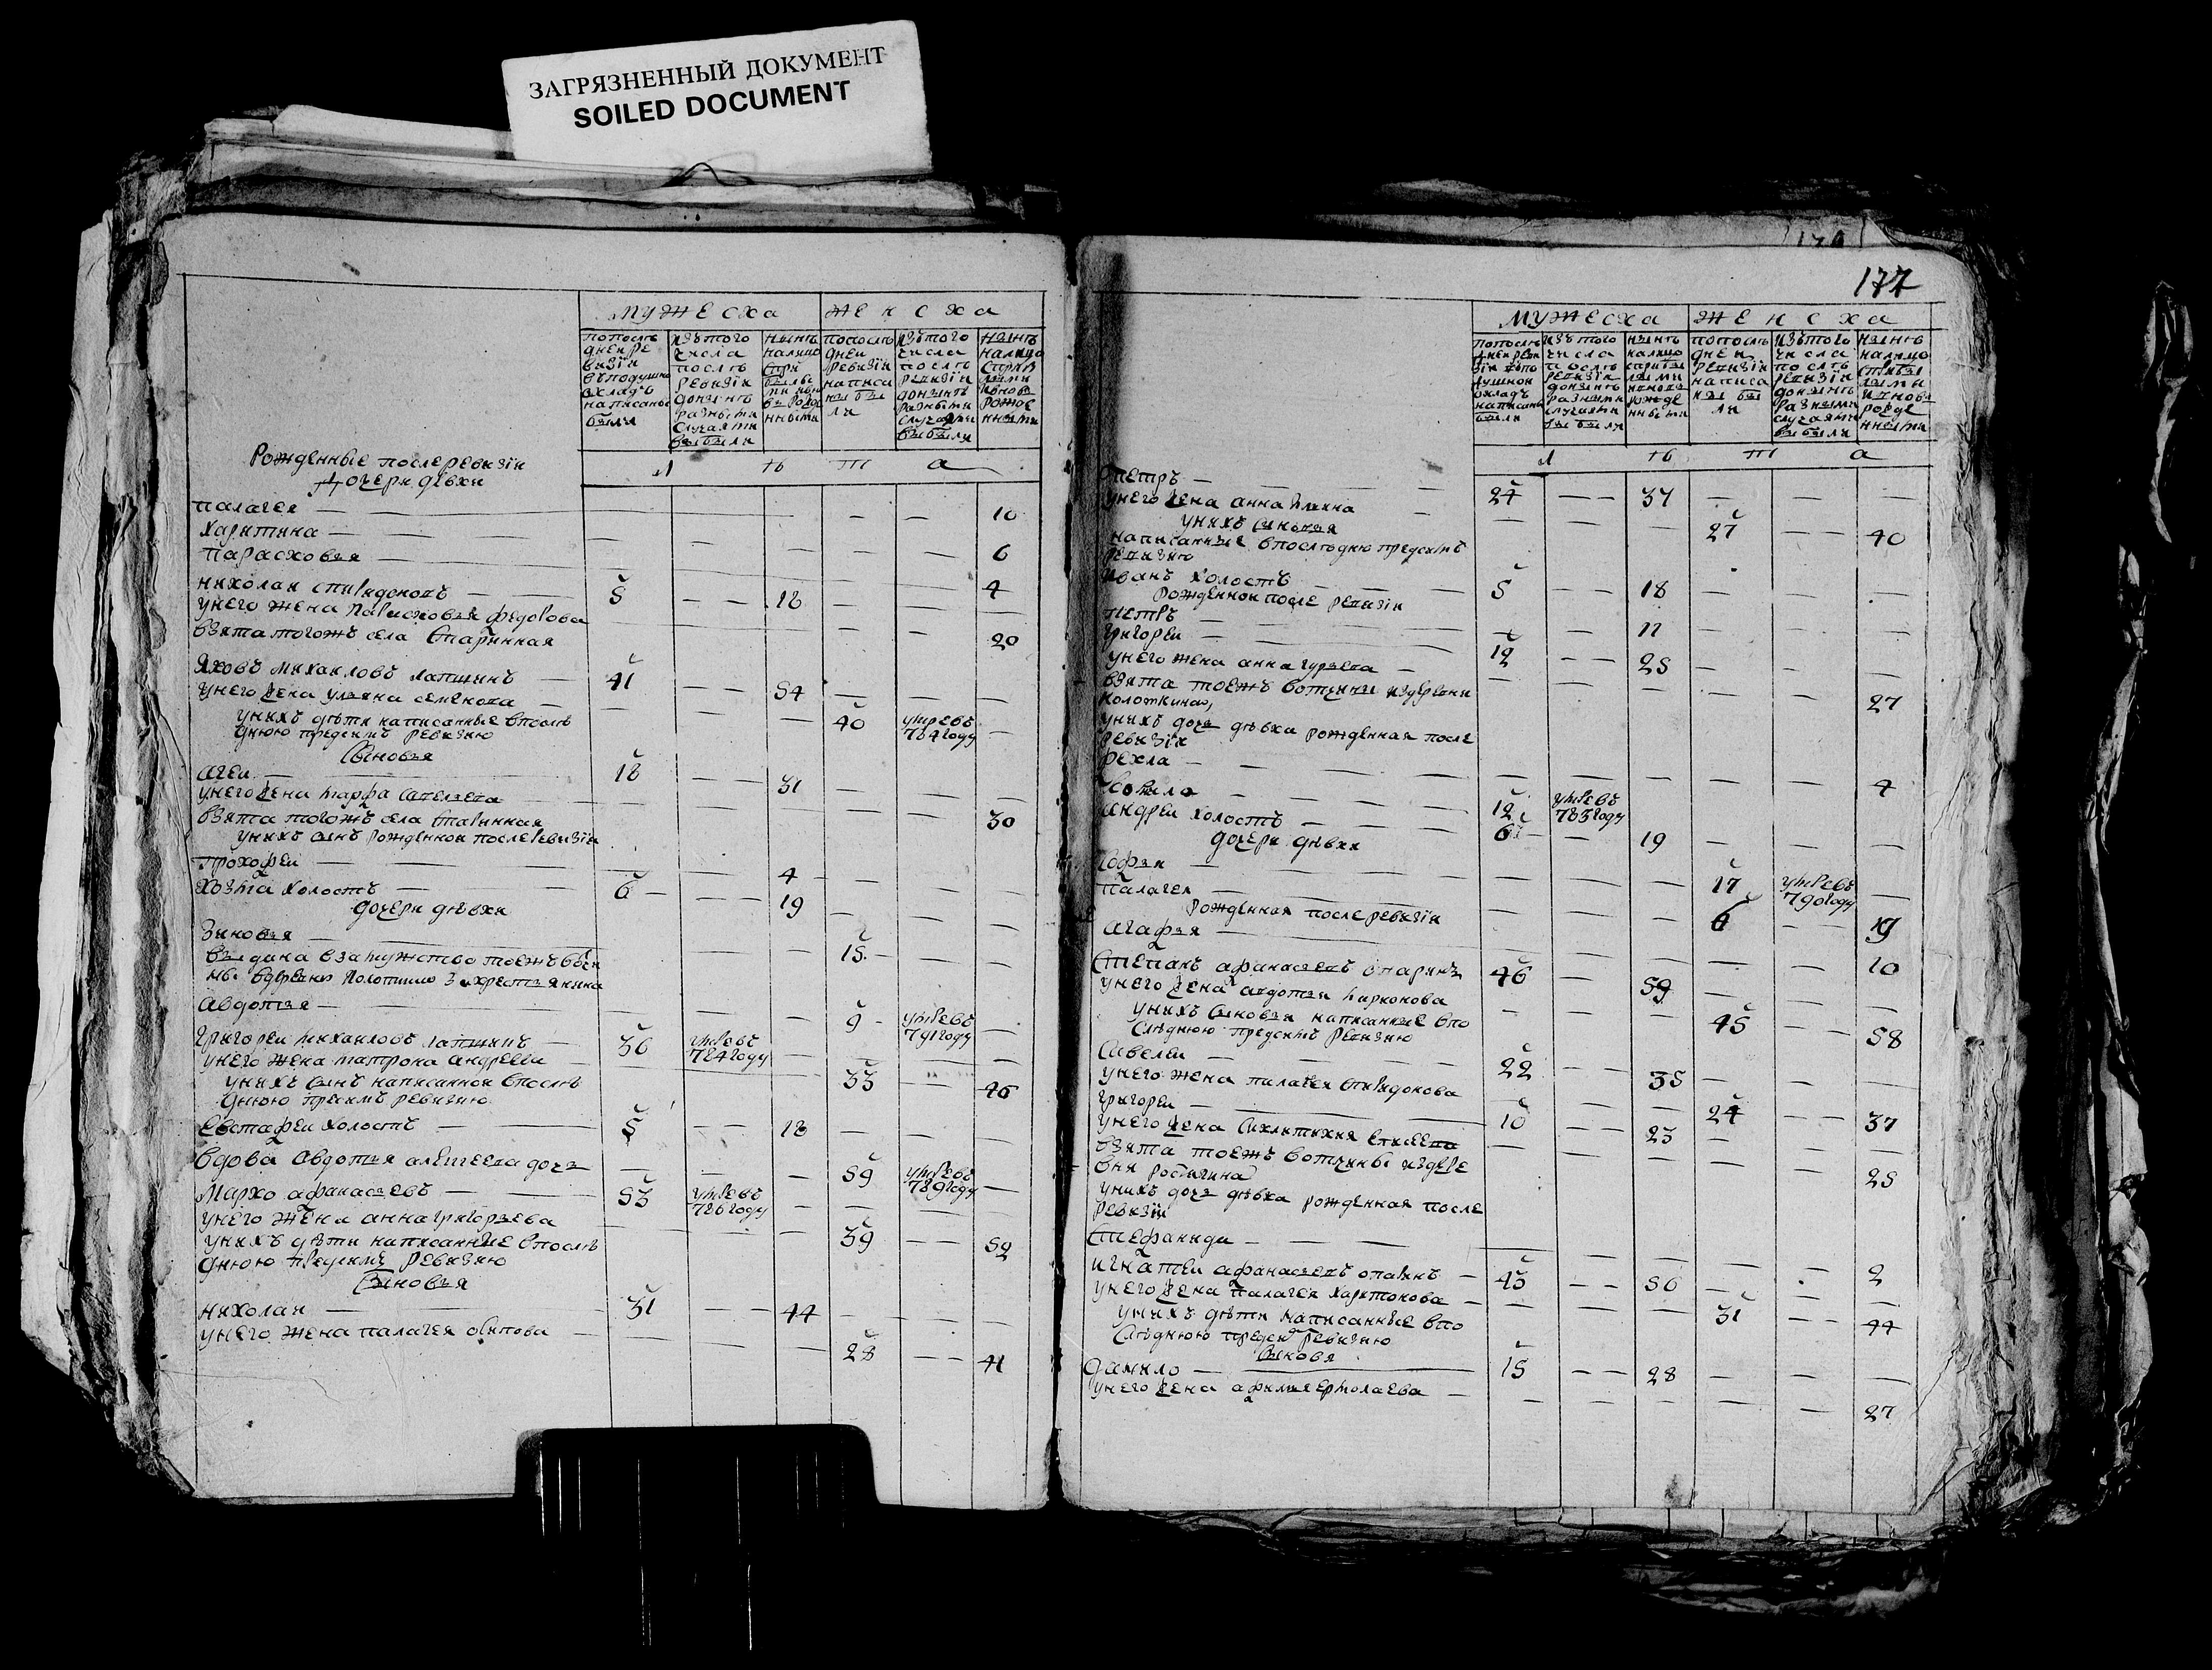 ЗАГРЯЗНЕННЫЙ ДОКУМЕНТ
SOILED DOCUMENT
мужеска женска
попослѣ
дней ре
визіи
въподушно
окладъ
написаны
были
изътого
числа
послѣ
ревизіи
донынѣ
разными
случаями
выбыли
нынѣ
налицо
попослѣ
дней
ревизіи
написа
ны бы
ли
изътого
числа
послѣ
ревизіи
донынѣ
разными
случаями
выбыли
нынѣ
налицо
Рожденные послеревизіи
дочери девки
л ѣ т а
палагея — — 10
харитина — — 6
парасковья — — 4
николаи спиридоновъ — 5 — 18
унего жена парасковья федорова — 20
взята тогожъ села старинная
яковъ михаиловъ лапшинъ — 41 — 54
унего жена ульяна семенова — 40 умре въ 784 году
унихъ дѣти написанные впослѣ
днюю предсимъ ревизию
сыновья
агеи — 18 — 31
унего жена марфа савельева — 30
взята тогожъ села старинная
унихъ сынъ рожденнои послеревизіи
прокофеи — 4
козма холостъ — 6 — 19
дочери дѣвки
зиновья — 15
выдана взамужство тоежъ вотчи
ны
авдотья — 9 умре въ 791 году
григореи михаиловъ лапшинъ — 36 умре въ 784 году
унего жена матрона андреева — 33 — 46
унихъ сынъ написаннои впослѣ
днюю пресимъ ревизию
евстафеи холостъ — 5 — 18
вдова авдотья алексеева дочь — 59 умре въ 789 году
марко афанасьевъ — 53 умре въ 786 году
унего жена анна григорьева — 39 — 52
унихъ дѣти написанные впослѣ
днюю предсимъ ревизию
сыновья
николаи — 31 — 44
унего жена палагея осипова — 28 — 41
177
мужеска женска
попослѣ
дней реви
зіи впо
душнои
окладъ
написаны
были
изътого
числа
послѣ
ревизіи
донынѣ
разными
случаями
выбыли
нынѣ
налицо
попослѣ
дней
ревизіи
написа
ны бы
ли
изътого
числа
по слѣ
ревизіи
донынѣ
разными
случаями
выбыли
нынѣ
налицо
л ѣ т а
петръ — 24 — 37
унего жена анна — 27 — 40
унихъ сыновья
написанные впослѣднюю предсимъ
ревизию
иванъ холостъ — 5 — 18
рожденнои после ревизіи
петръ — 11
григореи — 12 — 25
унего жена анна гурьева — 27
взята тоежъ вотчины издеревни
колоткина
унихъ дочь дѣвка рожденная после
ревизіи
фекла — 4
— 12 умре въ 785 году
андреи холостъ — 6 — 19
дочери дѣвки
софья — 17 умре въ 790 году
палагея — 6 — 19
рожденная после ревизіи
агафья — 10
степанъ афанасьевъ опаринъ 46 — 59
унего жена авдотья миронова — 45 — 58
унихъ сыновья написанные впо
слѣднюю предсимъ ревизию
савелеи — 22 — 35
унего жена палагея спиридонова — 24 — 37
григореи — 10 — 23
унего жена елисеева — 25
взята тоежъ вотчины издере
вни
унихъ дочь дѣвка рожденная после
ревизіи
стефанида — 2
игнатеи афанасьевъ опаринъ — 43 — 56
унего жена палагея харитонова — 31 — 44
унихъ дѣти написанные впо
слѣднюю предсим ревизию
сыновя
данило — 15 — 28
унего жена афимья ермолаева — 27